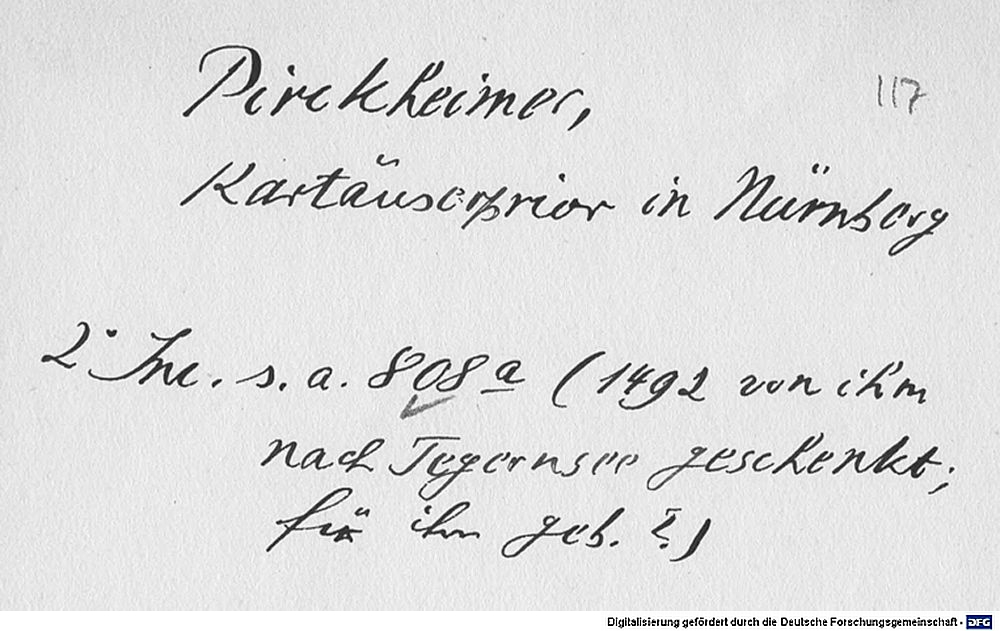 Pirckheimer,
117
Kartäuserprior in Nürnberg
2° Inc. s. a. 808 a (1492 von ihm
nach Tegernsee geschenkt;
für ihn geb. ?)
Digitalisierung gefördert durch die Deutsche Forschungsgemeinschaft - DFG